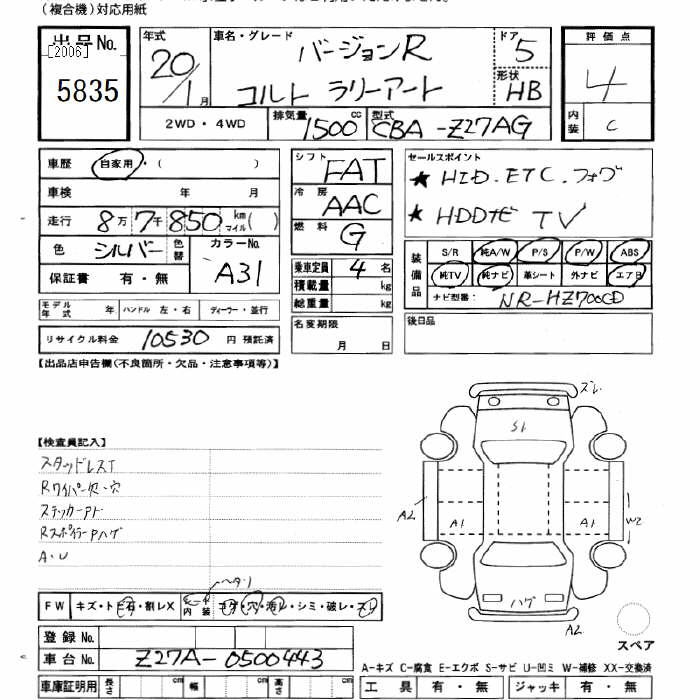 (複合機)対応用紙
出品No.
[2006]
5835
年式
20/1月
車名・グレード
バージョンR
コルト ラリーアート
ドア
5
形状
HB
評価点
4
内装
C
2WD・4WD
排気量
1500cc
型式
CBA-Z27AG
車歴
自家用・( )
車検 年 月
走行 8万7千850km マイル( )
色 シルバー 色替
カラーNo.
A31
保証書 有・無
モデル年式 年 ハンドル 左・右 ディーラー・並行
リサイクル料金 10530円 預託済
シフト
FAT
冷房
AAC
燃料
G
乗車定員 4名
積載量 kg
総重量 kg
名変期限
月 日
セールスポイント
★ HID.ETC.フォグ
★ HDDナビ TV
装備品
S/R 純A/W P/S P/W ABS
純TV 純ナビ 革シート 外ナビ エアB
ナビ型番: NR-HZ700CD
後日品
【出品店申告欄(不良箇所・欠品・注意事項等)】
【検査員記入】
スタッドレスT
Rワイパー欠・穴
ステッカーアト
RスポイラーPハゲ
A・U
ズレ
S1
A2
A1
A1
W2
ハゲ
A2
スペア
FW
キズ・トビ石・割レX
シート内装
ヘタリ
コゲ・穴・汚レ・シミ・破レ・スレ
登録No.
車台No.
Z27A-0500443
車庫証明用
長さ cm 幅 cm 高さ cm
A-キズ C-腐食 E-エクボ S-サビ U-凹ミ W-補修 XX-交換済
工具 有・無 ジャッキ 有・無